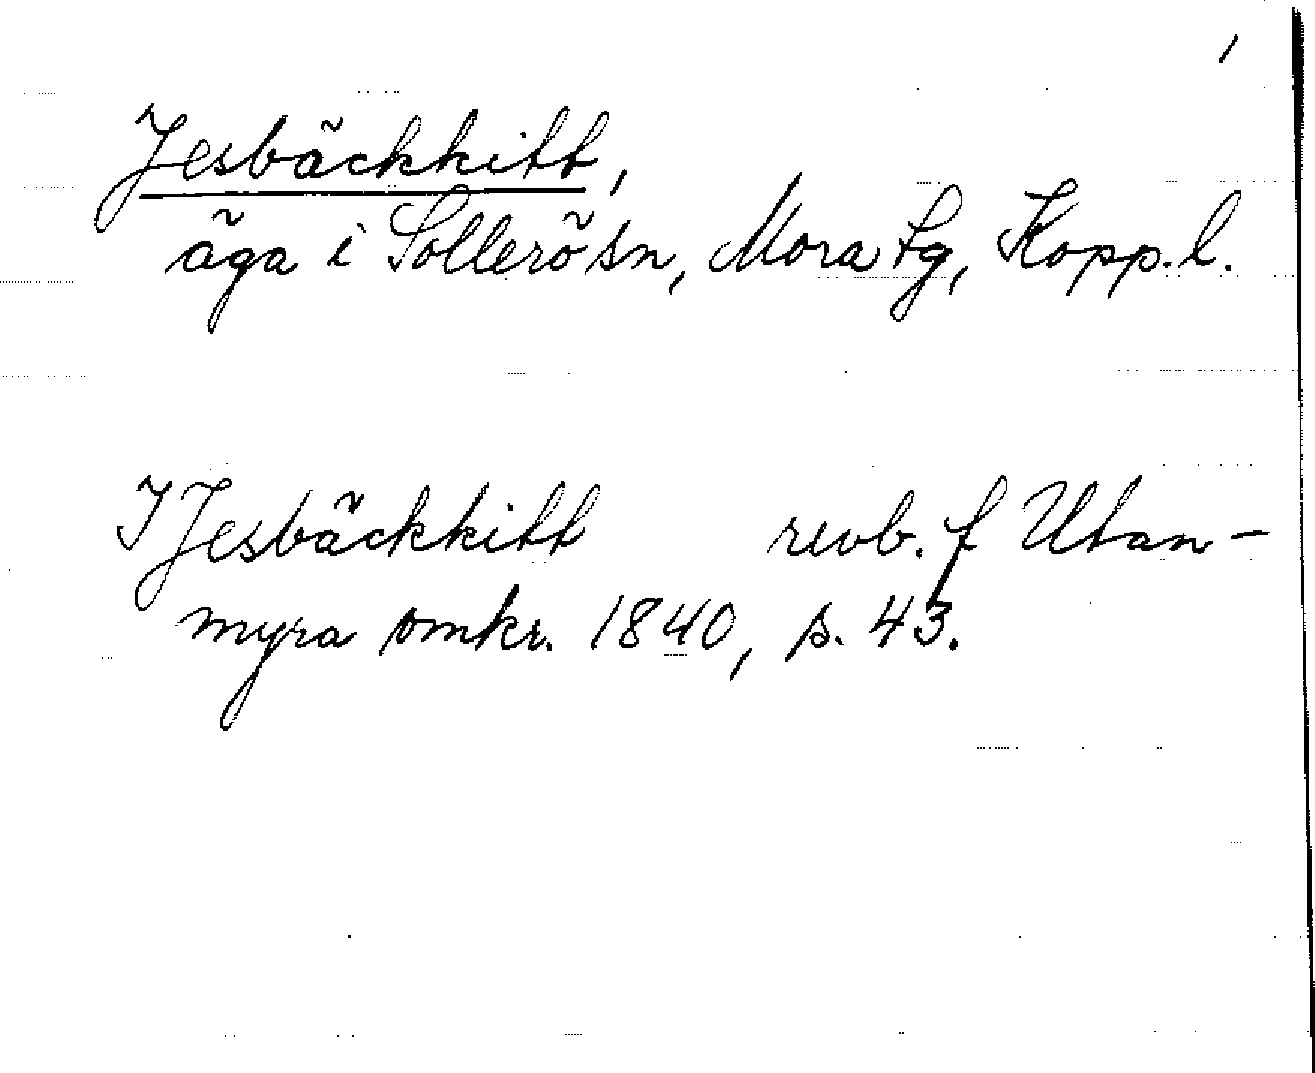 /
Jesbäckkitt,
äga i Sollerö sn, Mora tg, Kopp. l.
I Jesbäckkitt revb. f Utan-
myra omkr. 1840, s. 43.